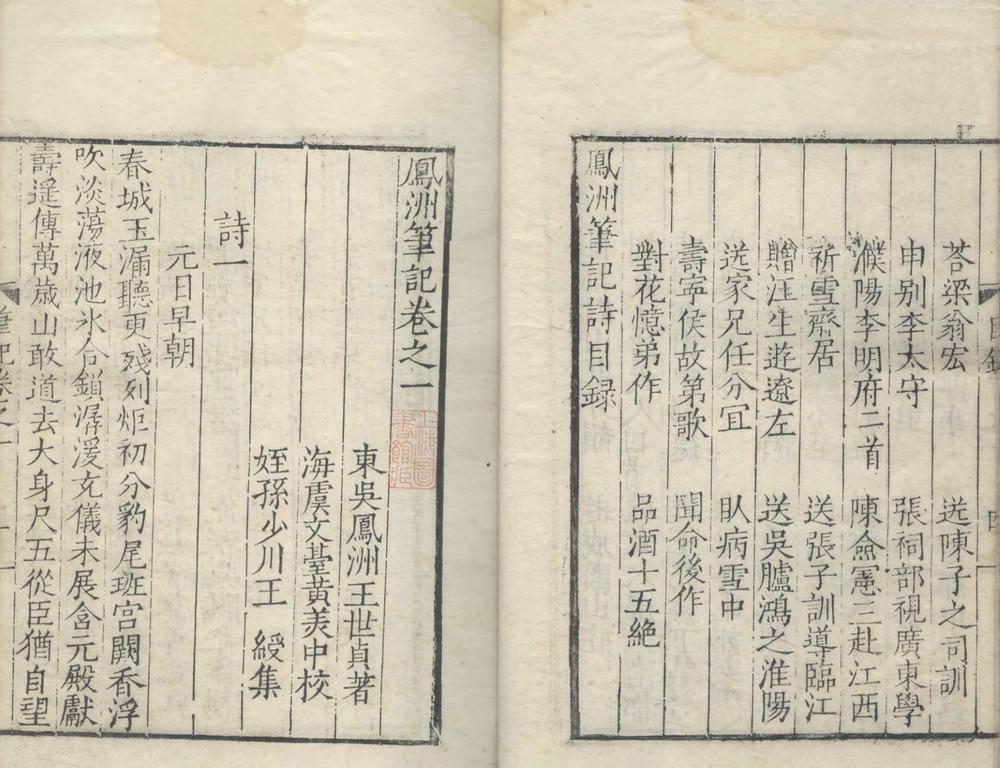 目錄 四
荅梁翁宏 送陳子之司訓
申别李太守 張祠部視廣東學
濮陽李明府二首 陳僉憲三赴江西
祈雪齋居 送張子訓導臨江
贈汪生遊遼左 送吳臚鴻之淮陽
送家兄任分宜 臥病雪中
壽寧侯故第歌 聞命後作
對花憶弟作 品酒十五絶
鳳洲筆記詩目録
鳳洲筆記卷之一
上海圖書館藏
東吳鳳洲王世貞著
海虞文臺黃美中校
姪孫少川王 綬集
詩一
元日早朝
春城玉漏聽更殘列炬初分豹尾班宮闕香浮
吹淡蕩液池氷合鎖潺湲充儀未展含元殿獻
壽遥傳萬歲山敢道去大身尺五從臣猶自望
筆記卷之一